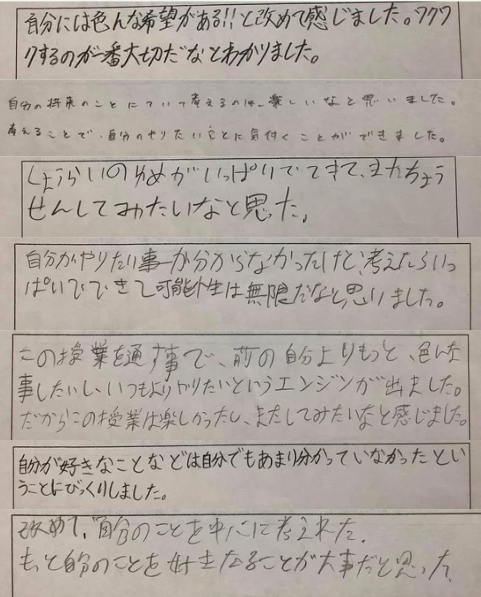 自分には色んな希望がある!!と改めて感じました。ワクワ
クするのが一番大切だなとわかりました。
自分の将来のことについて考えるのは、楽しいなと思いました。
考えることで、自分のやりたいことに気付くことができました。
しょうらいのゆめがいっぱいでてきて、またちょう
せんしてみたいなと思った。
自分がやりたい事が分からなかったけど、考えたらいっ
ぱいでてきて可能性は無限だなと思いました。
この授業を通す事で、前の自分よりもっと、色んな
事したいし、いつもよりやりたいというエンジンが出ました。
だからこの授業は楽しかったし、またしてみたいなと感じました。
自分が好きなことなどは自分でもあまり分かっていなかったとい
うことにびっくりしました。
改めて、自分のことを中心に考えれた。
もっと自分のことを好きなることが大事だと思った。